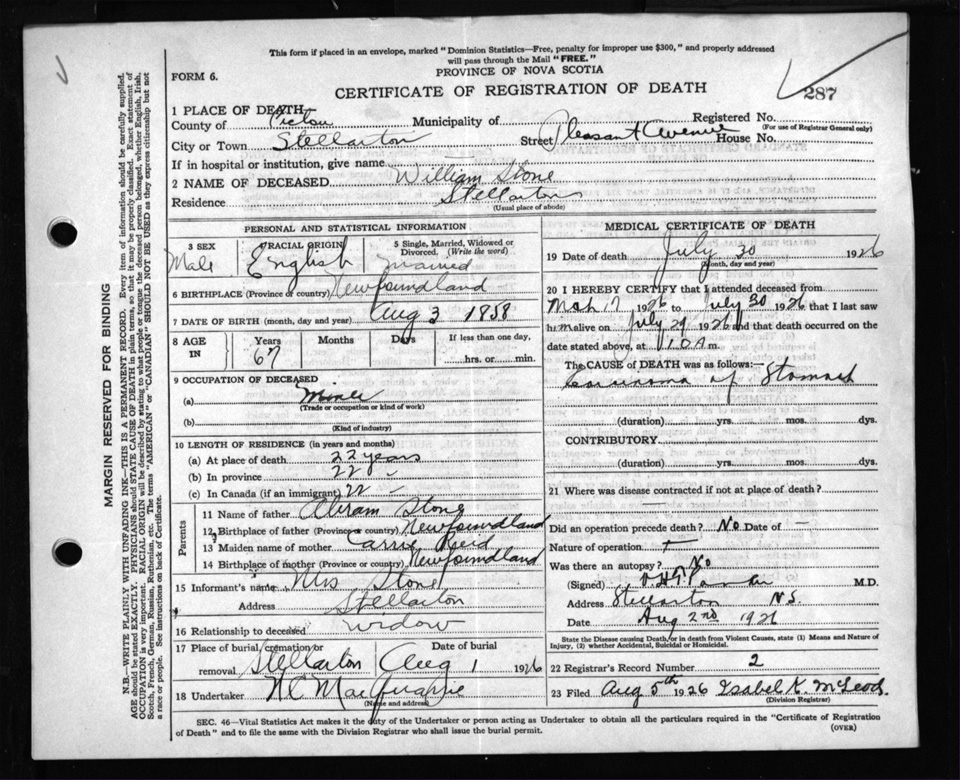 This form if placed in an envelope, marked "Dominion Statistics—Free, penalty for improper use $300," and properly addressed
will pass through the Mail "FREE."
FORM 6.
PROVINCE OF NOVA SCOTIA
CERTIFICATE OF REGISTRATION OF DEATH
287
1 PLACE OF DEATH
County of Pictou Municipality of Registered No.
(For use of Registrar General only)
City or Town Stellarton Street Pleasant Avenue House No.
If in hospital or institution, give name —
2 NAME OF DECEASED William Stone
Residence Stellarton
(Usual place of abode)
PERSONAL AND STATISTICAL INFORMATION
3 SEX Male
RACIAL ORIGIN English
5 Single, Married, Widowed or Divorced. (Write the word) Married
6 BIRTHPLACE (Province or country) Newfoundland
7 DATE OF BIRTH (month, day and year) Aug 3 1858
8 AGE IN Years 67 Months Days If less than one day, hrs. or min.
9 OCCUPATION OF DECEASED
(a) Miner
(Trade or occupation or kind of work)
(b)
(Kind of industry)
10 LENGTH OF RESIDENCE (in years and months)
(a) At place of death 22 years
(b) In province 22 -
(c) In Canada (if an immigrant) 22 -
Parents
11 Name of father Abram Stone
12 Birthplace of father (Province or country) Newfoundland
13 Maiden name of mother Carrie Reid
14 Birthplace of mother (Province or country) Newfoundland
15 Informant's name Mrs Stone
Address Stellarton
16 Relationship to deceased widow
17 Place of burial, cremation or removal Stellarton
Date of burial Aug 1 1926
18 Undertaker
(Name and address)
MEDICAL CERTIFICATE OF DEATH
19 Date of death July 30 1926
(Month, day and year)
20 I HEREBY CERTIFY that I attended deceased from
Mch 17 1926 to July 30 1926 that I last saw
him alive on July 29 1926 and that death occurred on
the date stated above, at m.
The CAUSE OF DEATH was as follows:—
Carcinoma of Stomach
(duration) yrs. mos. dys.
CONTRIBUTORY
(duration) yrs. mos. dys.
21 Where was disease contracted if not at place of death?
Did an operation precede death? No Date of —
Nature of operation
Was there an autopsy? No
(Signed) M.D.
Address Stellarton N.S.
Date Aug 2nd 1926
State the Disease causing Death, or in death from Violent Causes, state (1) Means and Nature of
Injury, (2) whether Accidental, Suicidal or Homicidal.
22 Registrar's Record Number 2
23 Filed Aug 5th 1926 Isabel K. McLeod.
(Division Registrar)
SEC. 46—Vital Statistics Act makes it the duty of the Undertaker or person acting as Undertaker to obtain all the particulars required in the "Certificate of Registration
of Death" and to file the same with the Division Registrar who shall issue the burial permit.
(OVER)
MARGIN RESERVED FOR BINDING
N.B.—WRITE PLAINLY WITH UNFADING INK—THIS IS A PERMANENT RECORD. Every item of information should be carefully supplied.
AGE should be stated EXACTLY. PHYSICIANS should STATE CAUSE OF DEATH in plain terms, so that it may be properly classified. Exact statement of
OCCUPATION is very important. RACIAL ORIGIN will be described by stating to what people or tongue the deceased person belonged, whether English, Irish,
Scotch, French, German, Russian, Ruthenian, etc. The terms "AMERICAN" or "CANADIAN" SHOULD NOT BE USED as they express citizenship but not
a race or people. See instructions on back of Certificate.